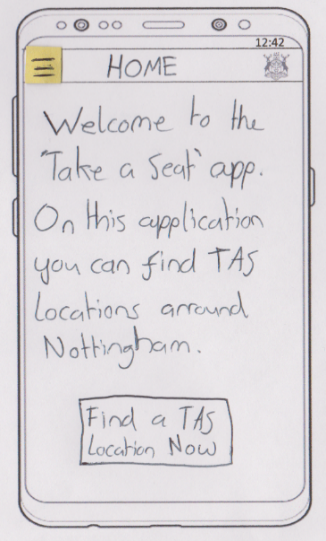 12:42
HOME
Welcome to the
"Take a Seat" app.
On this application
you can find TAS
Locations arround
Nottingham.
Find a TAS
Location Now